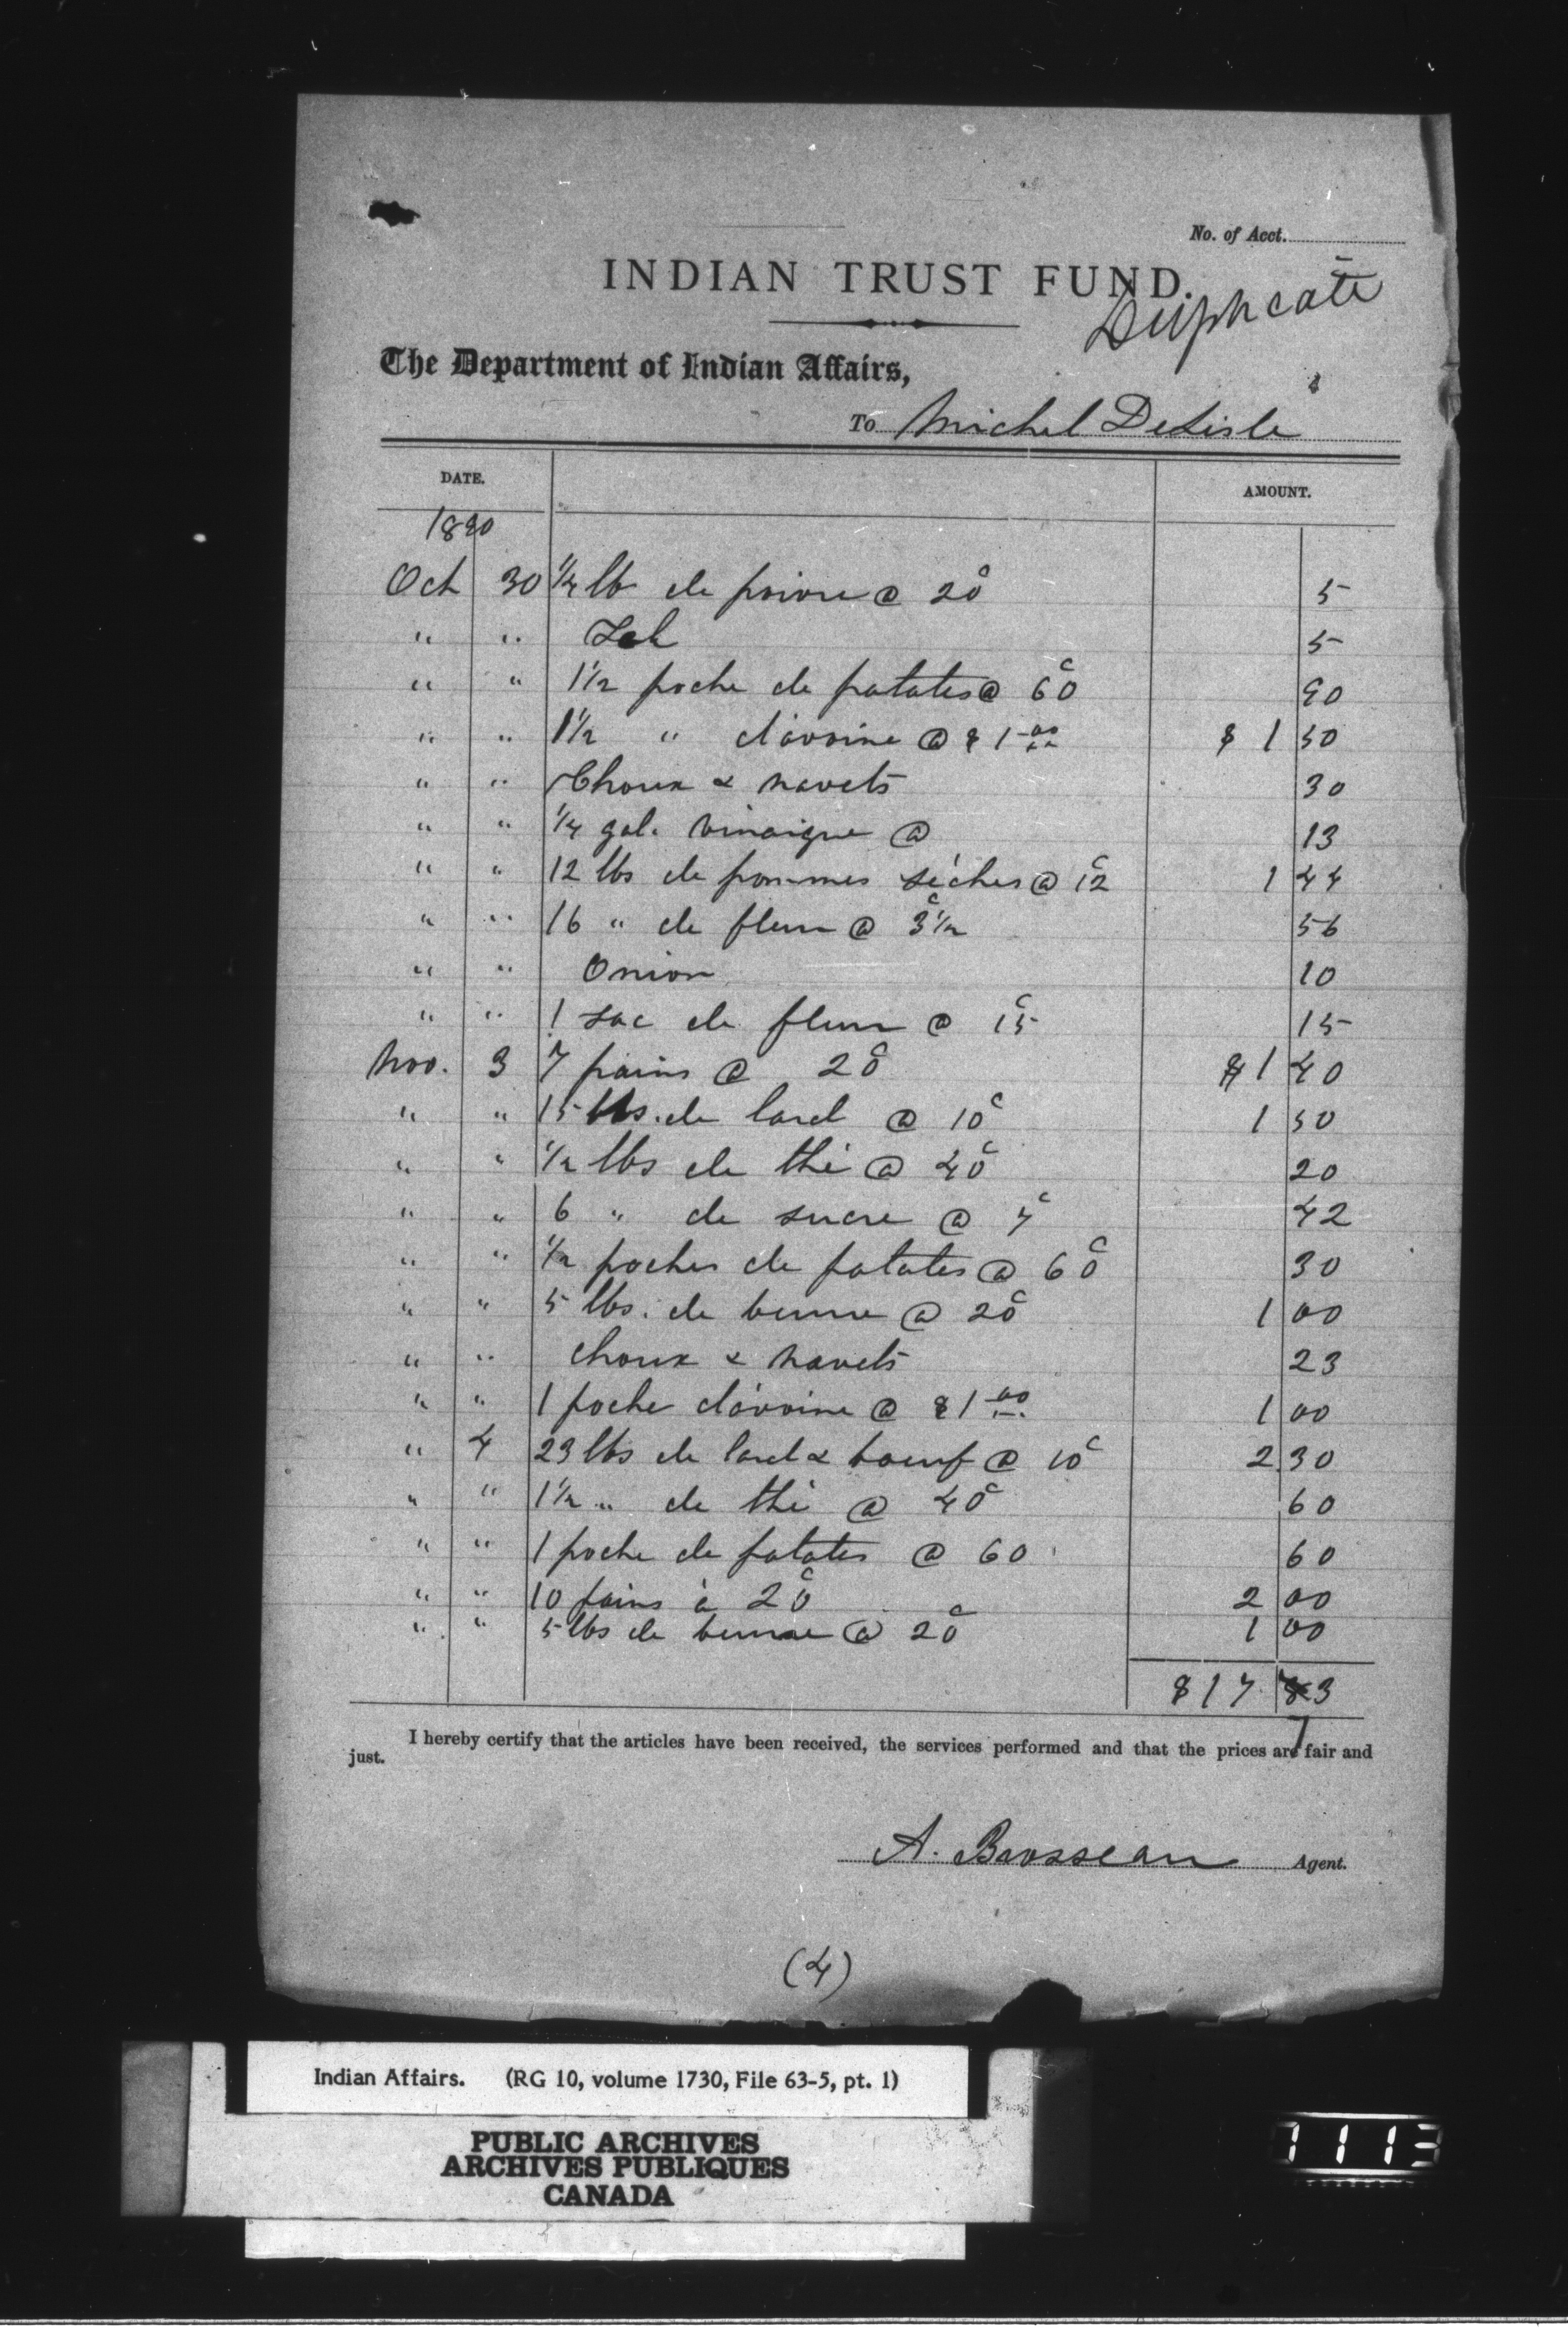 No. of Acct.
INDIAN TRUST FUND.
Duplicate
The Department of Indian Affairs,
To Michel DeLisle
DATE. AMOUNT.
1890
Oct 30 1/4 lb de poivre @ 20c 5
" " Sel 5
" " 1 1/2 poche de patates @ 60c 90
" " 1 1/2 " d'avoine @ $1.00 $1 50
" " Choux & navets 30
" " 1/4 gal. vinaigre @ 13
" " 12 lbs de pommes séches @ 12c 1 44
" " 16 " de fleur @ 3 1/2c 56
" " Onion 10
" " 1 sac de fleur @ 15c 15
Nov. 3 7 pains @ 20c $1 40
" " 15 lbs. de lard @ 10c 1 50
" " 1/2 lbs de thé @ 40c 20
" " 6 " de sucre @ 7c 42
" " 1/2 poches de patates @ 60c 30
" " 5 lbs. de beurre @ 20c 1 00
" " choux & navets 23
" " 1 poche d'avoine @ $1.00 1 00
" 4 23 lbs de lard & boeuf @ 10c 2 30
" " 1 1/2 " de thé @ 40c 60
" " 1 poche de patates @ 60 60
" " 10 pains à 20c 2 00
" " 5 lbs de beurre @ 20c 1 00
$17 73
I hereby certify that the articles have been received, the services performed and that the prices are fair and
just.
A. Brosseau Agent.
(4)
Indian Affairs. (RG 10, volume 1730, File 63-5, pt. 1)
PUBLIC ARCHIVES
ARCHIVES PUBLIQUES
CANADA
1113